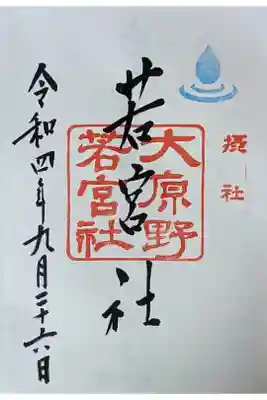 摂社
若宮社
大原野
若宮社
令和四年九月二十六日